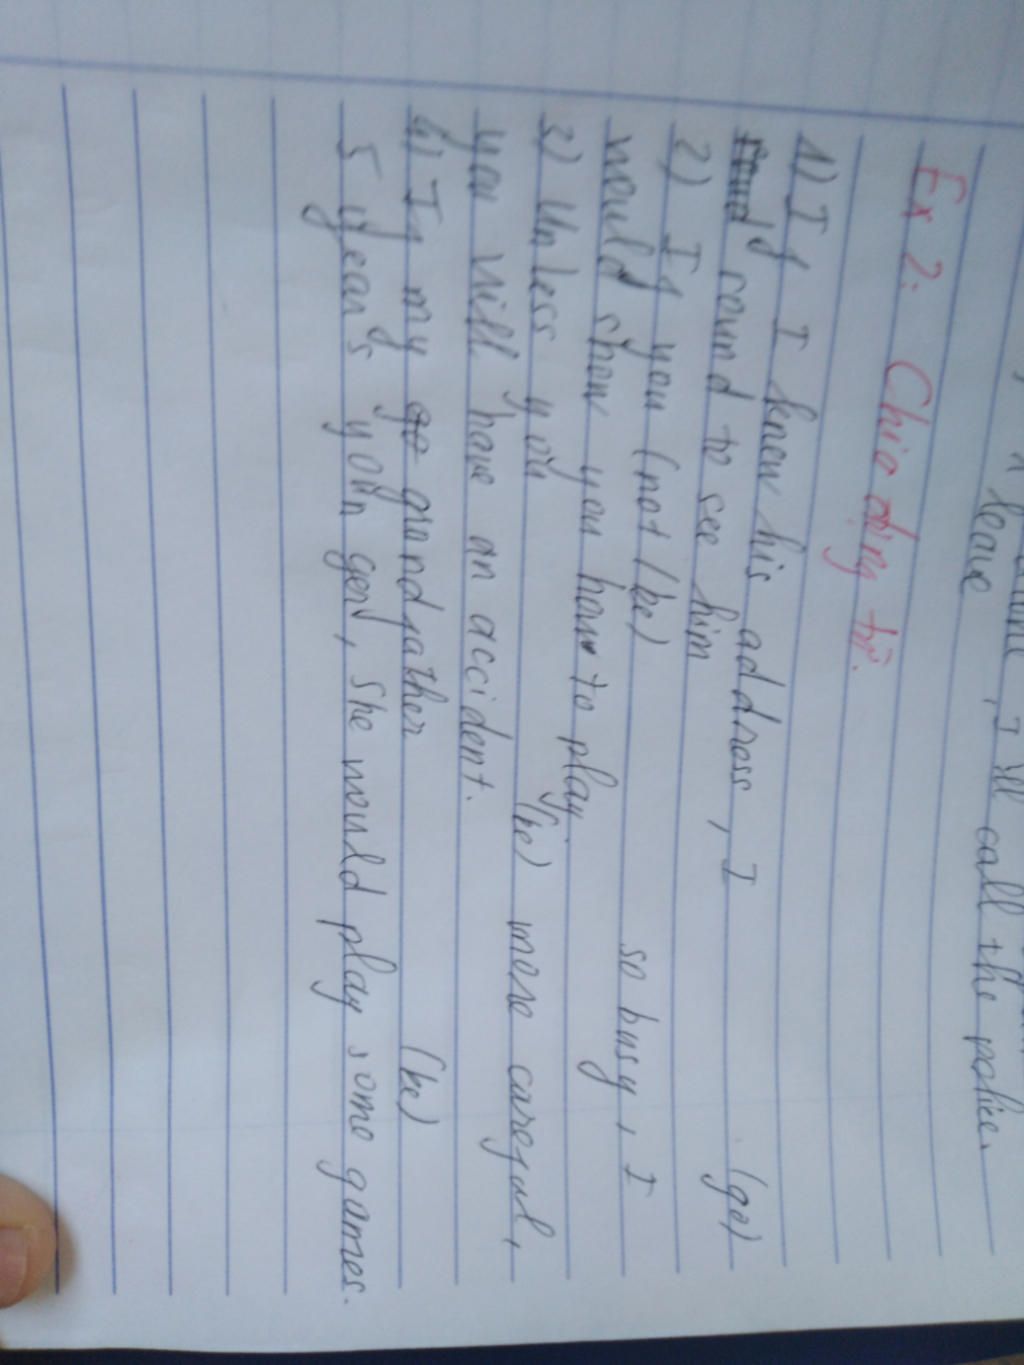 leave , I'll call the police.
Ex 2: Chia động từ.
1) If I knew his address, I (go)
round to see him
2) If you (not / be) so busy, I
would show you how to play.
3) Unless you (be) more careful,
you will have an accident.
4) If my grandfather (be)
5 year's youn ger, she would play some games.